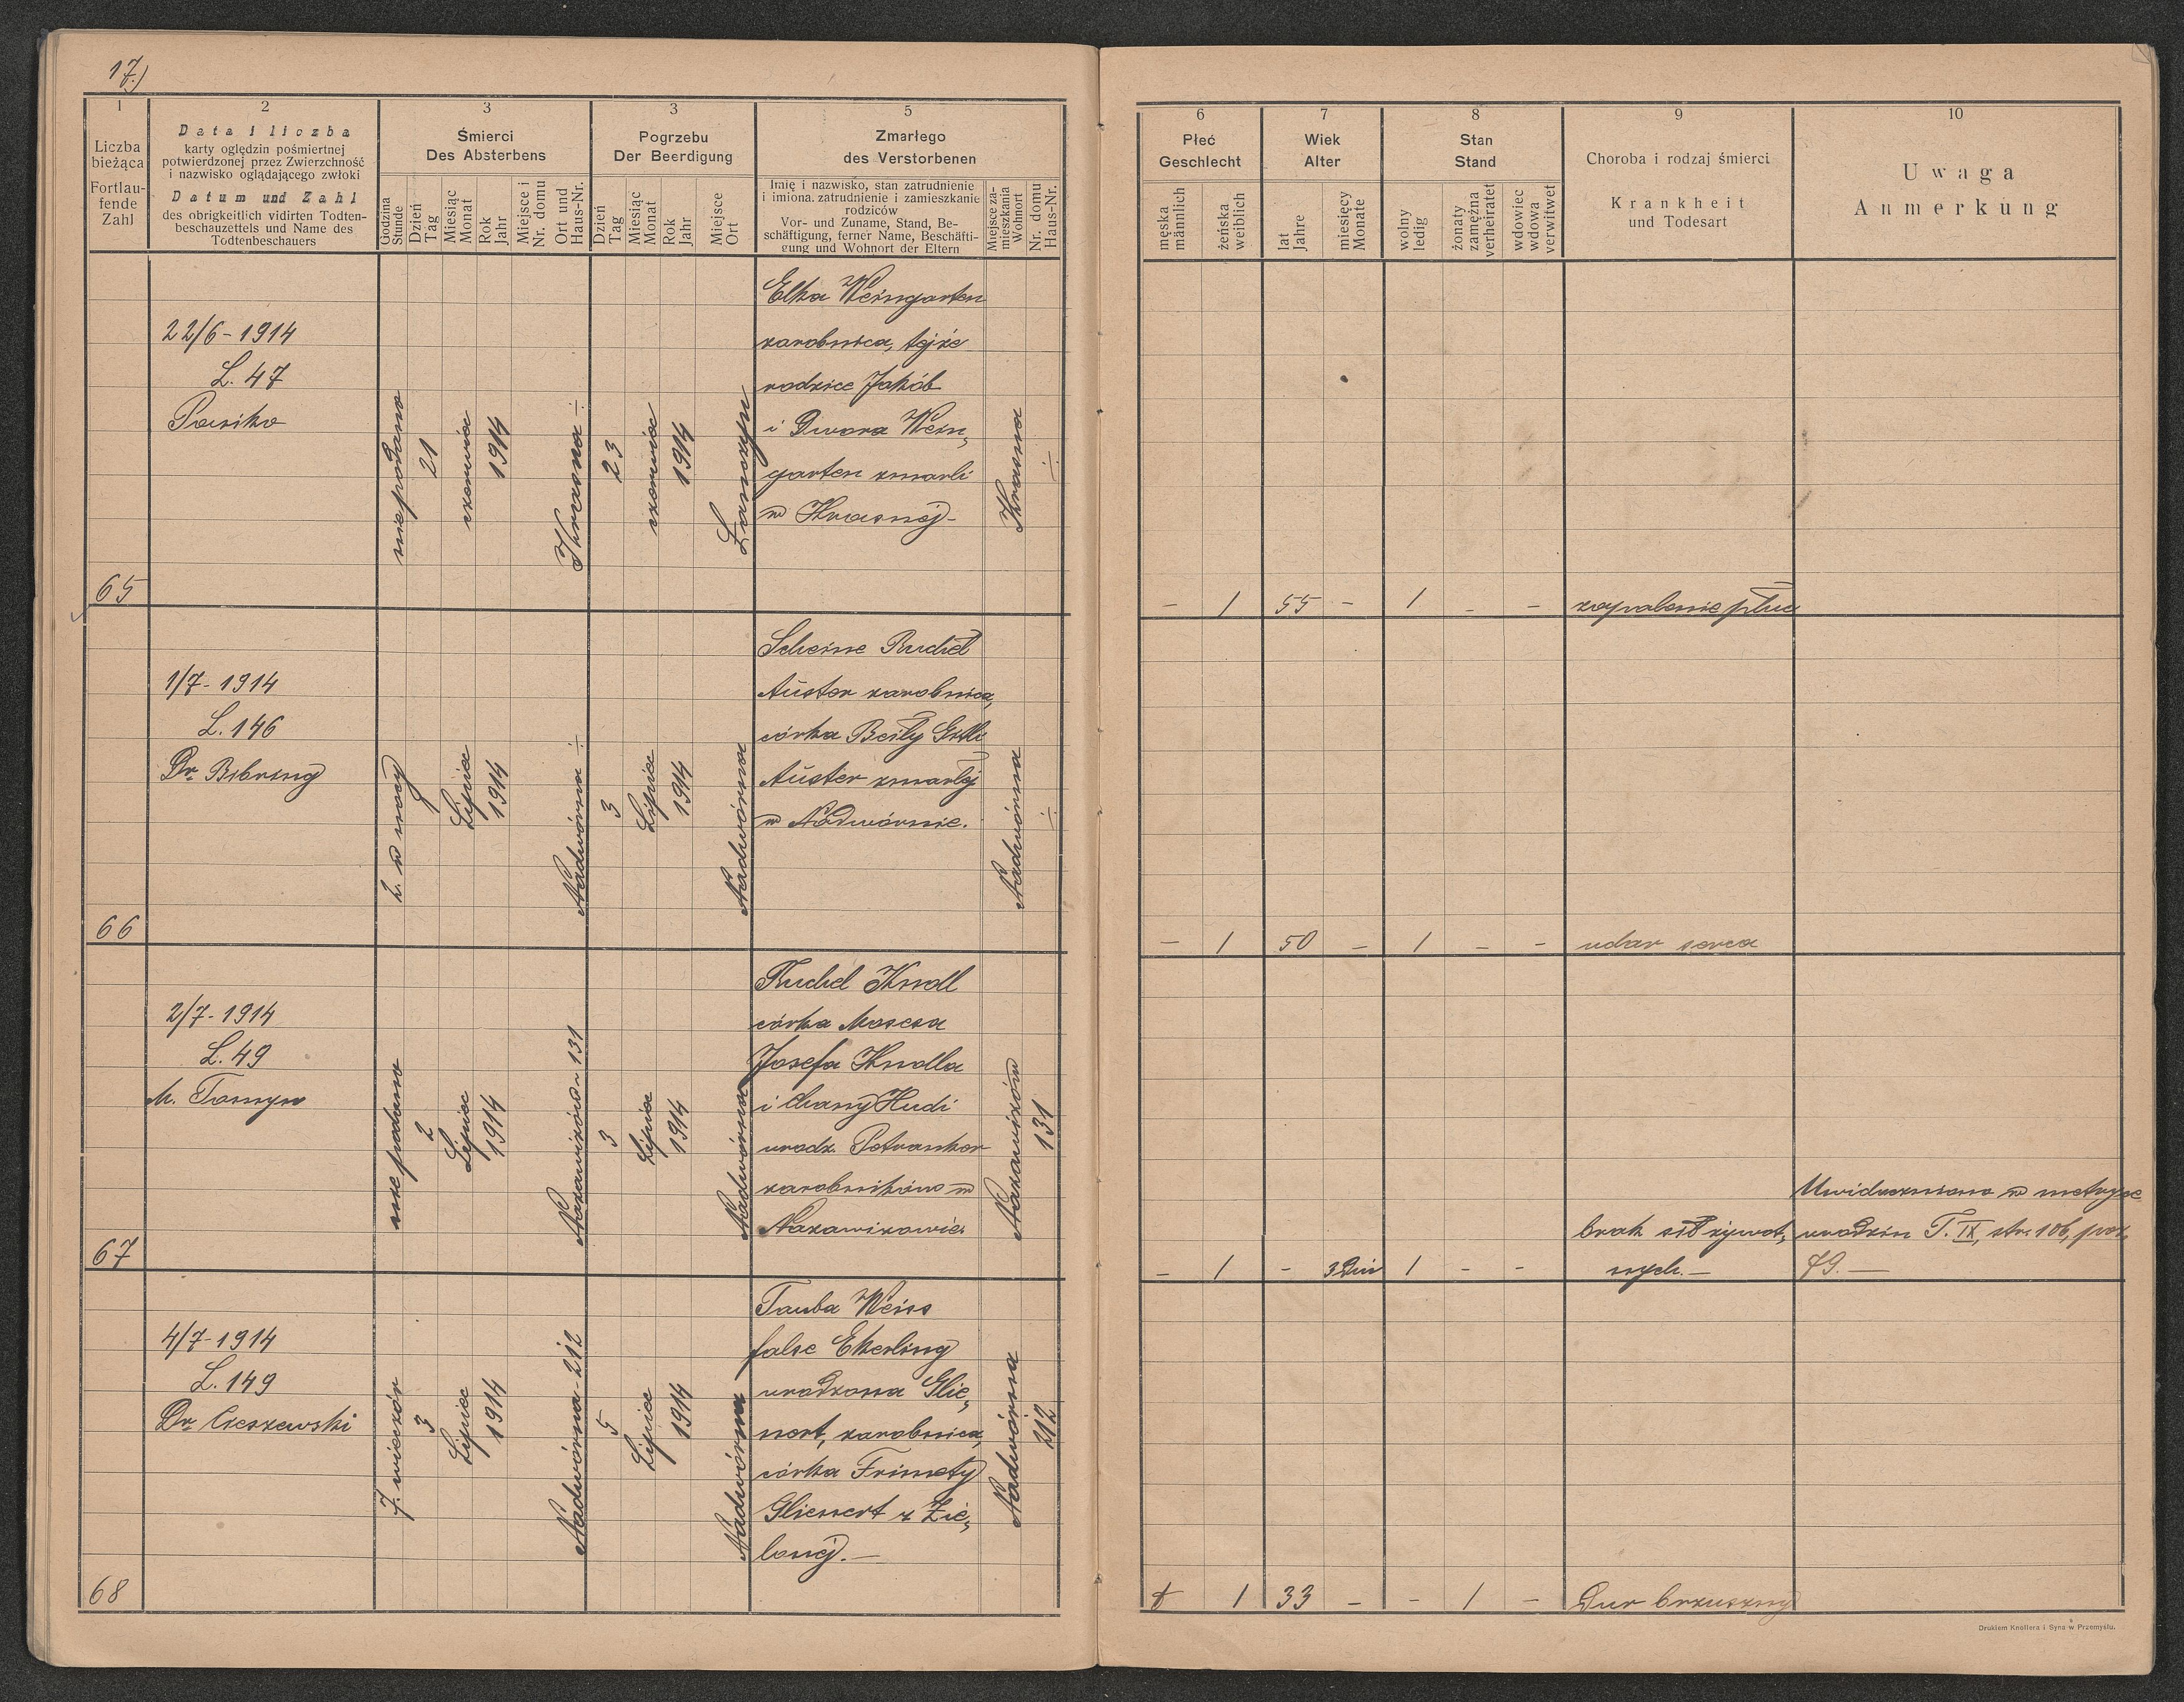 17.)
1
Liczba
bieżąca
Fortlau-
fende
Zahl
2
Data i liczba
karty oględzin pośmiertnej
potwierdzonej przez Zwierzchność
i nazwisko oglądającego zwłoki
Datum und Zahl
des obrigkeitlich vidirten Todten-
beschauzettels und Name des
Todtenbeschauers
3
Śmierci
Des Absterbens
Godzina
Stunde
Dzień
Tag
Miesiąc
Monat
Rok
Jahr
Miejsce i
Nr. domu
Ort und
Haus-Nr.
3
Pogrzebu
Der Beerdigung
Dzień
Tag
Miesiąc
Monat
Rok
Jahr
Miejsce
Ort
5
Zmarłego
des Verstorbenen
Imię i nazwisko, stan zatrudnienie
i imiona. zatrudnienie i zamieszkanie
rodziców
Vor- und Zuname, Stand, Be-
schäftigung, ferner Name, Beschäfti-
gung und Wohnort der Eltern
Miejsce za-
mieszkania
Wohnort
Nr. domu
Haus-Nr.
6
Płeć
Geschlecht
męska
männlich
żeńska
weiblich
7
Wiek
Alter
lat
Jahre
miesięcy
Monate
8
Stan
Stand
wolny
ledig
żonaty
zamężna
verheiratet
wdowiec
wdowa
verwitwet
9
Choroba i rodzaj śmierci
Krankheit
und Todesart
10
Uwaga
Anmerkung
65
22/6-1914
L. 47
niepodano
21
czerwca
1914
Krasna ÷
23
czerwca
1914
Łanczyn
Elka Weingarten
zarobnica, tejże
rodzice Jakób
i Dwora Wein„
garten zmarli
w Krasnej-
Krasna
÷
– 1 55 – 1 – –
zapalenie płuc
66
1/7-1914
L. 146
Dr. Bibring
2. w nocy
Lipiec
1914
Nadwórna ÷
3
Lipiec
1914
Nadwórna
Scheine Ruchel
Auster zarobnica,
córka Beily Gitli
Auster zmarłej
w Nadwórnie.
Nadwórna
÷
– 1 50 – 1 – –
udar serca
67
2/7-1914
L. 49
niepodano
2
Lipiec
1914
Nazawizów 131
3
Lipiec
1914
Nadwórna
Ruchel Knoll
córka Mosesa
Josefa Knolla
i Chany Hudi
urodz. Potranker
zarobników w
Nazawizowie.
Nazawizów
131
– 1 – 3 Dni 1 – –
brak sił żywot„
nych.—
Uwidoczniono w metryce
urodzin T. IX, str. 106, poz.
79.—
68
4/7-1914
L. 149
Dr. Cieszewski
7. wieczór
3
Lipiec
1914
Nadwórna-212
5
Lipiec
1914
Nadwórna
Tauba Weiss
false Ekerling
urodzona Glie„
nert, zarobnica,
córka Frimety
Glienert z Zie„
lonej.—
Nadwórna
212
1 33 – – 1 –
Dur brzuszny
Drukiem Knollera i Syna w Przemyślu.